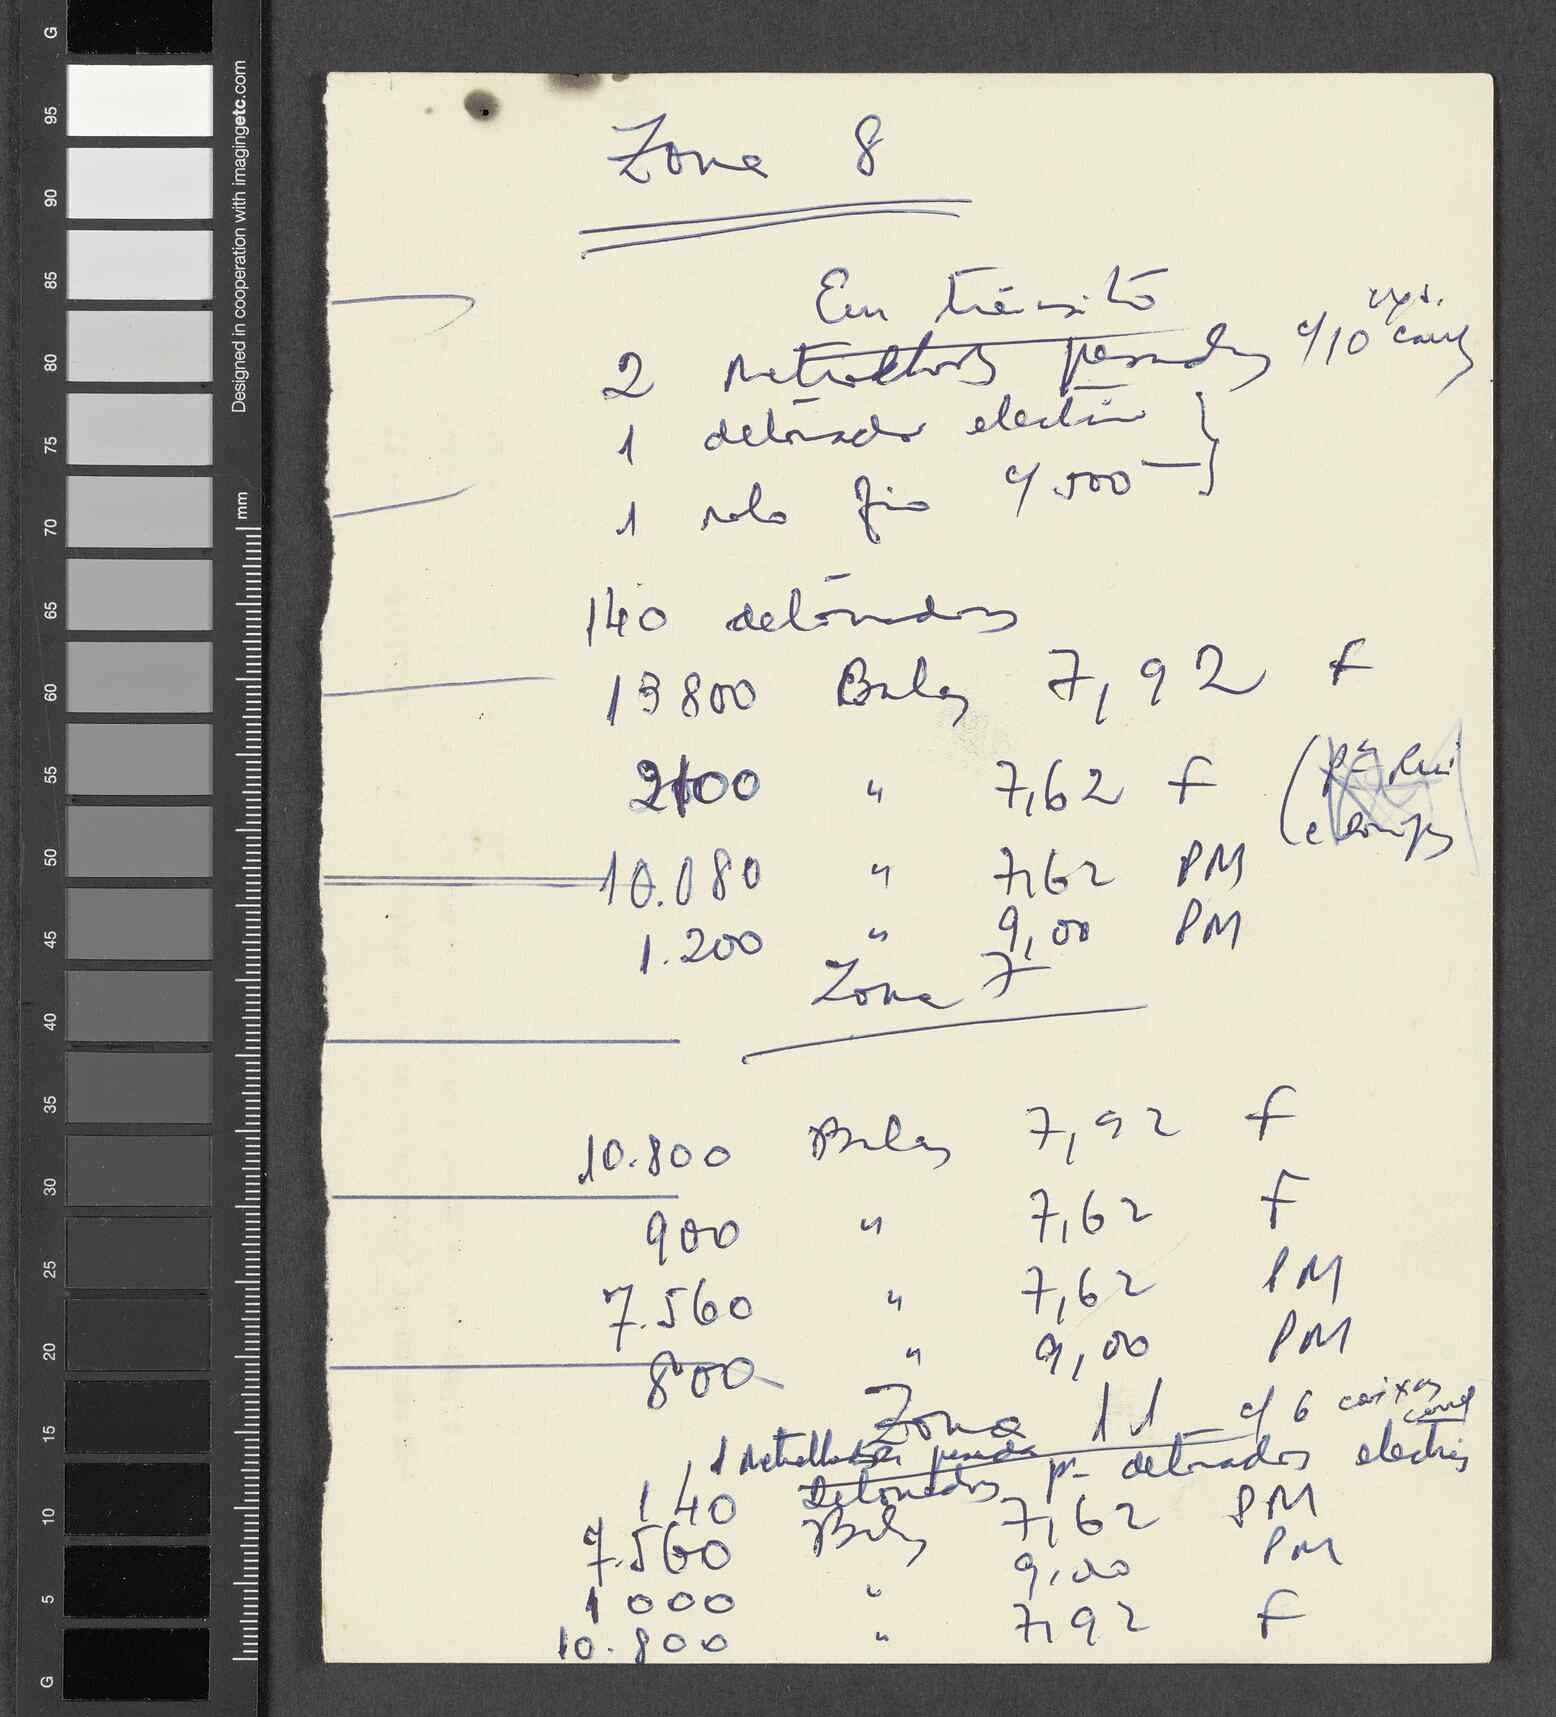 G
95
90
85
80
75
70
65
60
55
50
45
40
35
30
25
20
15
10
5
G
Designed in cooperation with imagingetc.com
mm
Zona 8
Em trânsito
2 metralhads pesadas c/10 cxs.
1 detonador electrico
1 rolo fio c/ 500
140 detonadores
13800 Balas 7,92 F
2100 " 7,62 F (pª Rui
e
10.080 " 7,62 PM
1.200 " 9,00 PM
Zona 7
10.800 Balas 7,92 F
900 " 7,62 F
7.560 " 7,62 PM
800 " 9,00 PM
Zona 11 c/ 6 caixas
1 Metralhadora pesada
140 Detonadores pª detonador electrico
7.560 Balas 7,62 PM
1000 " 9,00 PM
10.800 " 7,92 F